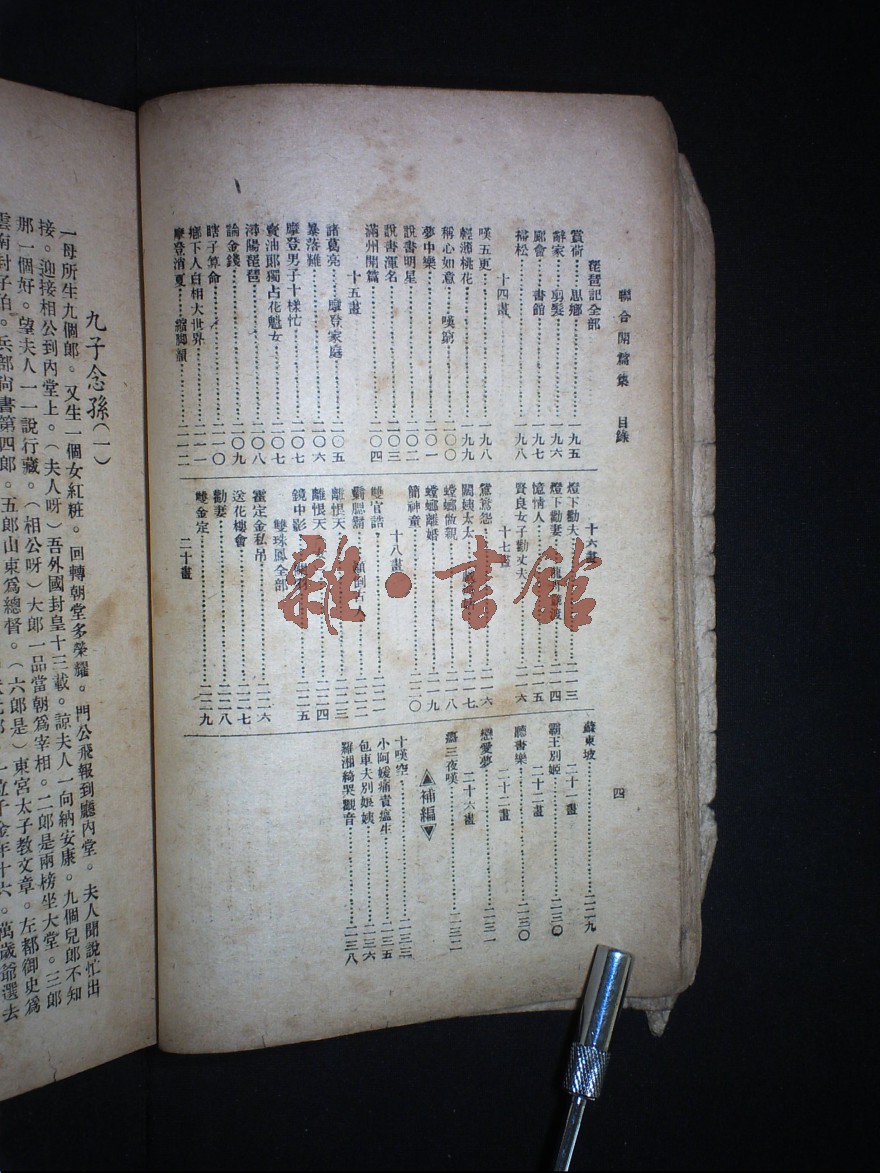 聯合開篇集　目錄
四
琵琶記全部
賞荷　思鄉…一九五
辭家　剪髮…一九六
廟會　書館…一九七
掃松…一九八
十四畫
嘆五更…一九八
輕薄桃花…一九九
稱心如意　嘆窮…二〇〇
夢中樂…二〇一
說書明星…二〇二
說書渾名…二〇三
滿州開篇…二〇四
十五畫
諸葛亮　摩登家庭…二〇五
暴落難…二〇六
摩登男子十樣忙…二〇七
賣油郎獨占花魁女…二〇七
潯陽琵琶…二〇八
論金錢…二〇九
瞎子算命…二一〇
鄉下人白相大世界…二一一
摩登消夏　縮脚韻…二一二
十六畫
燈下勸夫…二一三
燈下勸妻…二一四
憶情人…二一五
賢良女子勸丈夫…二一六
十七畫
鴛鴦怨…二一六
闊姨太太…二一七
螳螂做親…二一八
螳螂離婚…二一九
簡神童…二二〇
十八畫
雙官誥…二二一
顛倒古人…二二二
離恨天…二二三
離恨天…二二四
鏡中影…二二五
雙珠鳳全部
霍定金私吊…二二六
送花樓會…二二七
勸妻…二二八
雙金定…二二九
二十畫
蘇東坡…二二九
二十一畫
霸王別姬…二三〇
二十二畫
聽書樂…二三〇
戀愛夢…二三一
二十六畫
三夜嘆…二三二
▲補編▼
十嘆空…二三三
小阿媛痛責瘟生…二三五
包車夫別姨…二三六
羅湘綺哭觀音…二三八
九子念孫（一）
一母所生九個郎。又生一個女紅粧。回轉朝堂多榮耀。門公飛報到廳內堂。夫人聞說忙出
接。迎接相公到內堂上。（夫人呀）吾外國封皇十三載。諒夫人一向納安康。九個兒郎不知
那一個好。望夫人一一說行藏。（相公呀）大郎一品當朝爲宰相。二郎是兩榜坐大堂。三郎
雲南封子伯。兵部尙書第四郎。五郎山東爲總督。（六郎是）東宮太子教文章。左都御史爲
萬歲爺選去
雜·書館